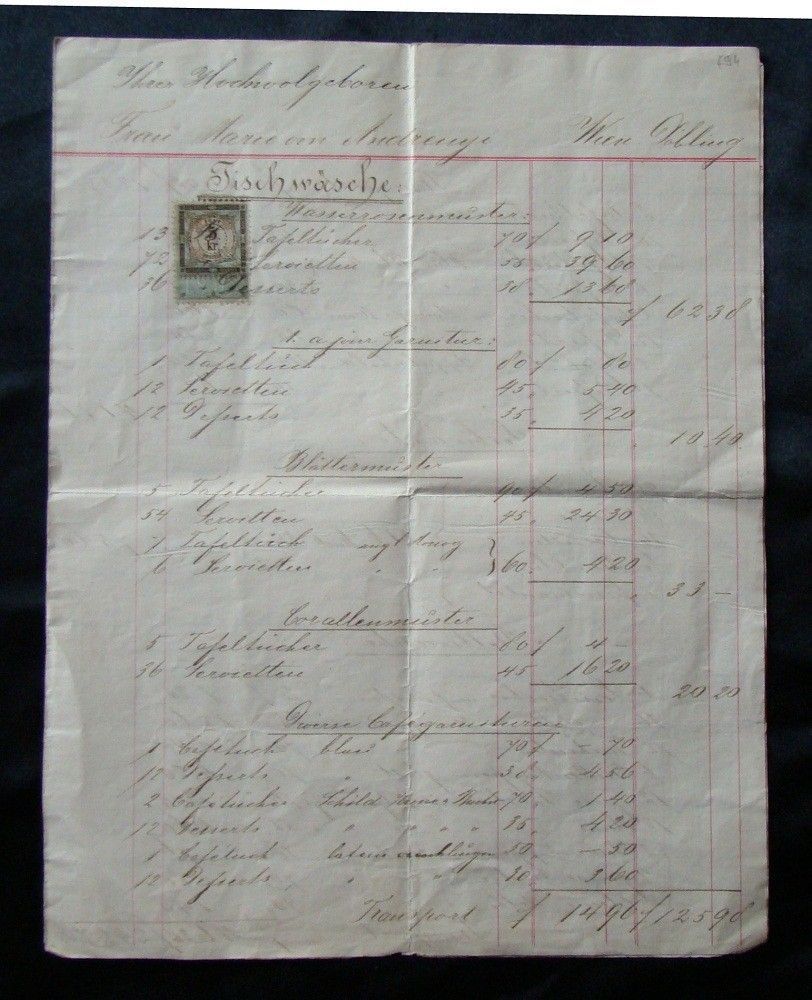 694
Ihrer Hochwolgeboren
Frau Marie von Andrenyi Wien Döbling
Tischwäsche:
Wasserrosenmuster:
5 Kr
13 Tafeltücher 70 f 9 10
72 Servietten 55 „ 39 60
36 „ Desserts 38 „ 13 68
f 62 38
1. a jour Garnitur:
1 Tafeltuch 80 f – 80
12 Servietten 45 „ 5 40
12 Desserts 35 „ 4 20
„ 10 40
Blättermuster
5 Tafeltücher 90 f 4 50
54 Servietten 45 „ 24 30
1 Tafeltuch
6 Servietten „ „ } 60 „ 4 20
„ 33 –
Corallenmuster
5 Tafeltücher 80 f 4 –
36 Servietten 45 „ 16 20
20 20
Diverse Cafégarnituren
1 Cafetuch blau 70 f – 70
12 Desserts „ 38 „ 4 56
2 Cafetücher Schild 70 „ 1 40
12 Desserts „ „ „ „ 35 „ 4 20
1 Cafetuch 50 „ – 50
12 Desserts „ „ 30 „ 3 60
Transport f 14 96 f 125 98